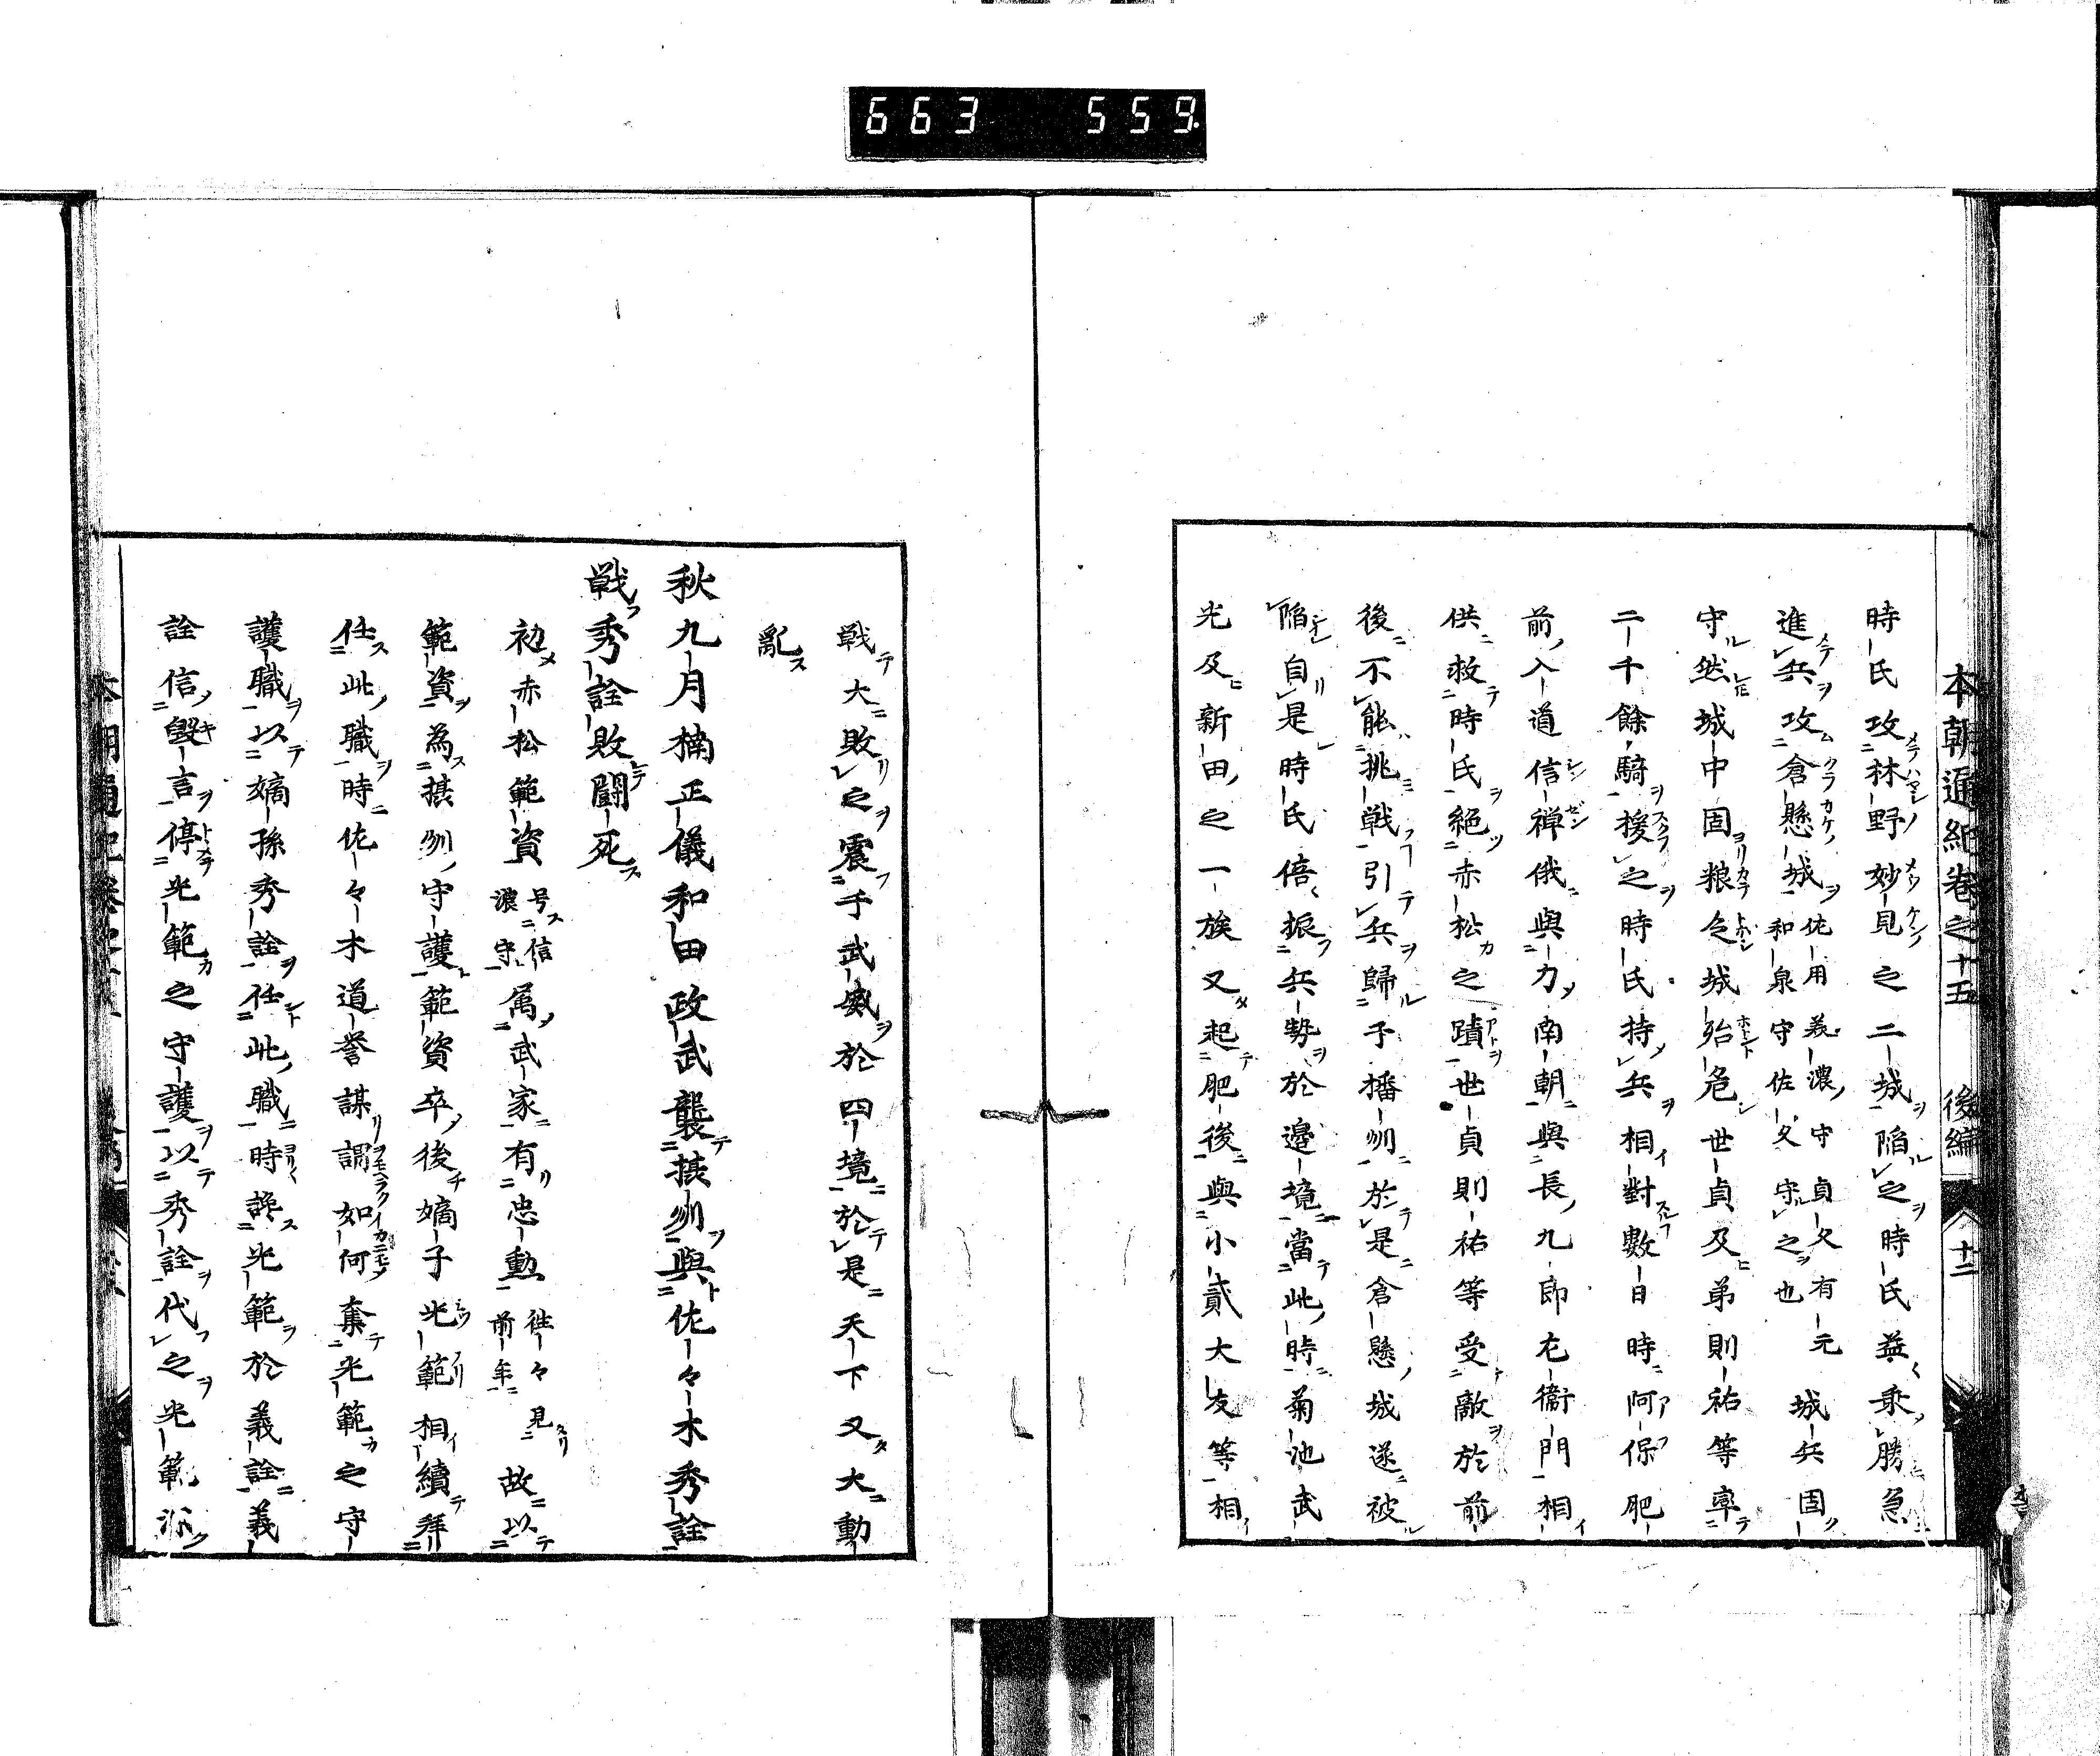 663 559.
本朝通紀卷之十五 後編 十二
時氏攻林野妙見之二城陥之時氏益乘勝急
進兵攻倉懸城佐用美濃守貞久有元和泉守佐久守之也城兵固
守然城中固粮乏城殆危世貞及弟則祐等率
二千餘騎援之時氏持兵相對數日時阿保肥
前入道信禅俄與力南朝與長九郎左衞門相
供救時氏絕赤松之蹟世貞則祐等受敵於前
後不能挑戰引兵歸于播州於是倉懸城遂被
陥自是時氏倍振兵勢於邉境當此時菊池武
光及新田之一族又起肥後與小貳大友等相
戰大敗之震于武威於四境於是天下又大動
亂
秋九月楠正儀和田政武襲摂州與佐々木秀詮
戰秀詮敗闘死
初赤松範資号信濃守属武家有忠勳往々見前年故以
範資為摂州守護範資卒後嫡子光範相續拜
任此職時佐々木道誉謀謂如何奪光範之守
護職以嫡孫秀詮任此職時讒光範於義詮義
詮信毀言停光範之守護以秀詮代之光範